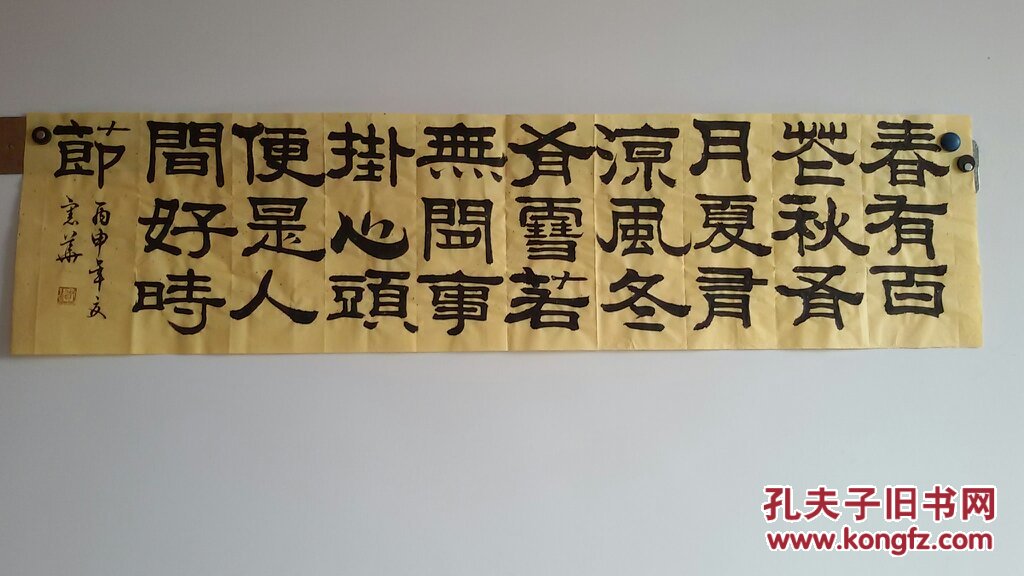 春有百
花秋有
月夏有
涼風冬
有雪若
無閒事
掛心頭
便是人
間好時
節
丙申年文
憲華
孔夫子旧书网
www.kongfz.com